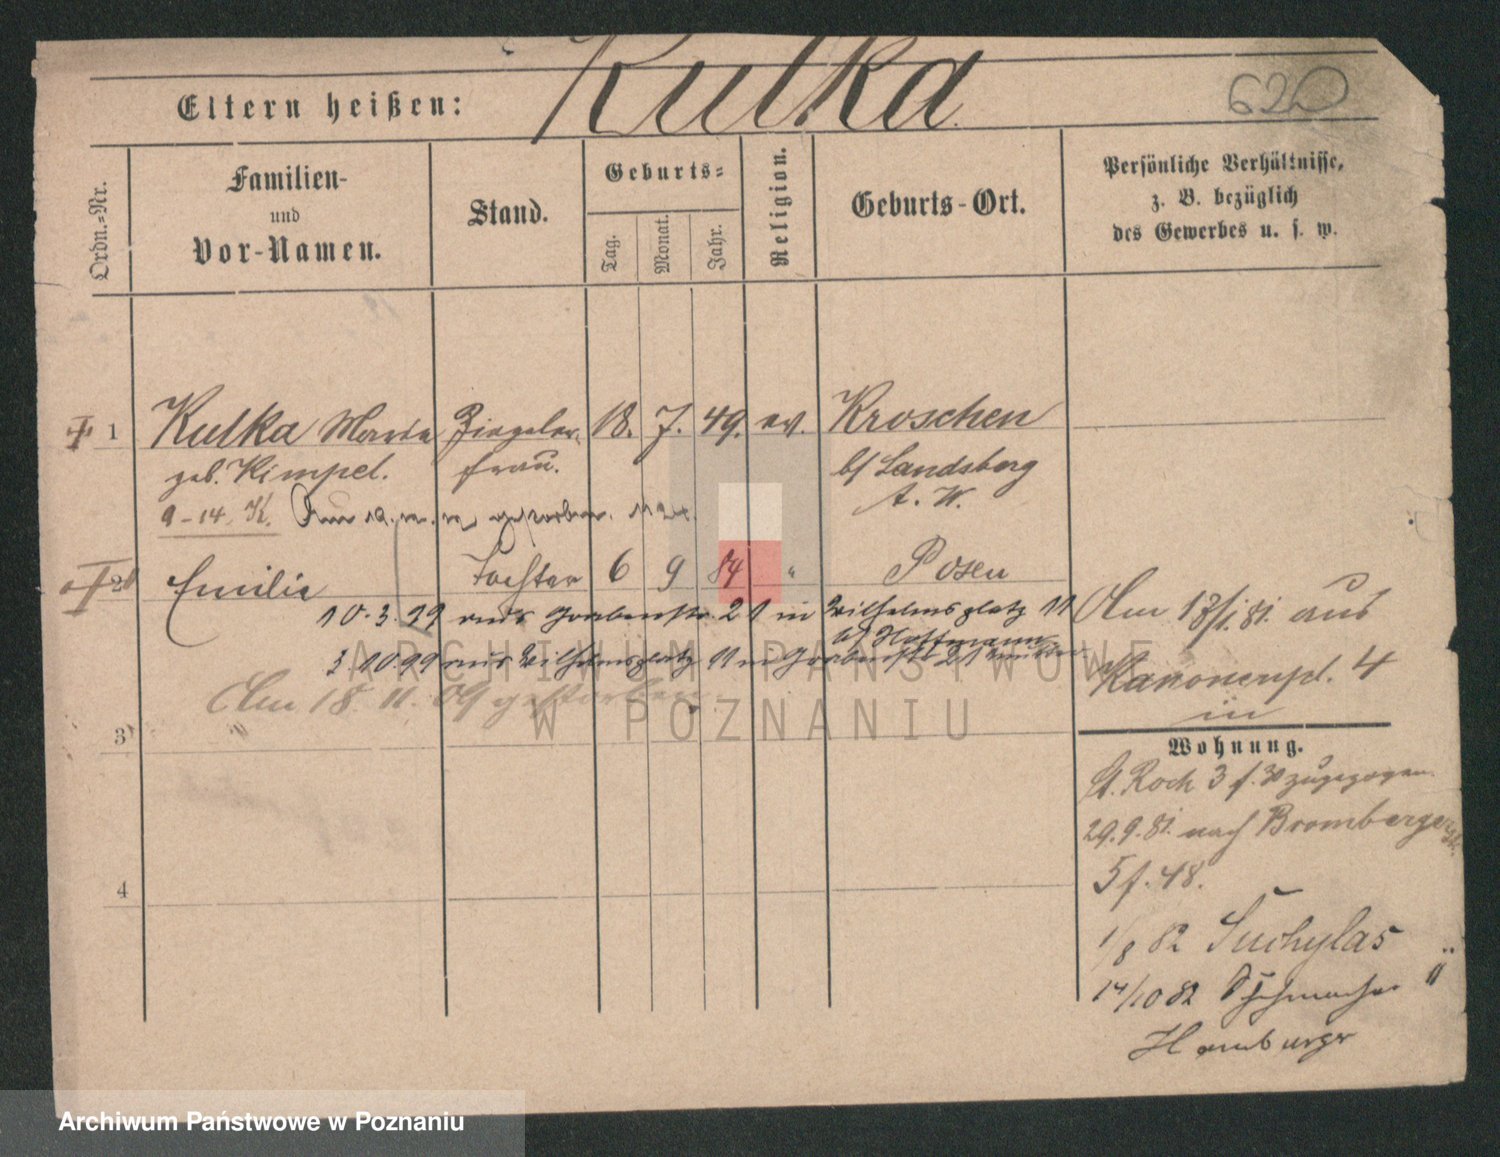 Kulka
620
Eltern heißen:
Ordn.=Nr.
Familien-
und
Vor-Namen.
Stand.
Geburts=
Tag.
Monat.
Jahr.
Religion.
Geburts-Ort.
Persönliche Verhältnisse,
z. B. bezüglich
des Gewerbes u. s. w.
1 Kulka Maria Ziegeler- 18. 7. 49. ev. Kroschen
geb. Kimpel. frau. b/ Landsberg
a. W.
9-14. K. gestorben.
2 Emilie Tochter 6 9 84 " Posen
10.3.99 aus Grabenstr. 21 in Wilhelmsplatz 11
b/ Hoffmann
3.10.99 aus Wilhelmsplatz 11 in Grabenstr 21
Am 18.11.09 gestorben.
3
4
Am 13/1.81. aus
Kanonenpl. 4
in
Wohnung.
St. Roch 3 f. 30 zugezogen.
29.9.81. nach Bromberger
5 f. 48.
1/8 82 Suchylas
14/10 82
Hamburger
ARCHIWUM PAŃSTWOWE
W POZNANIU
Archiwum Państwowe w Poznaniu